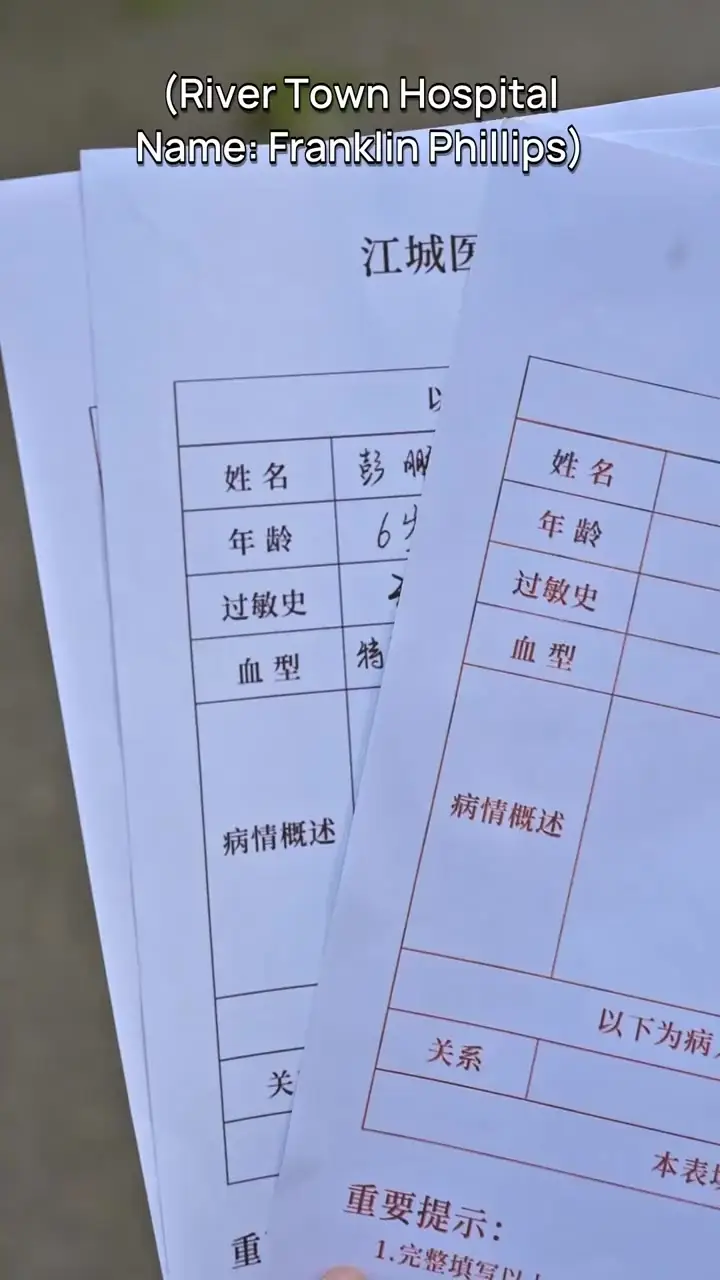 (River Town Hospital
Name: Franklin Phillips)
江城医
姓名 彭鹏
年龄 6岁
过敏史
血型 特
病情概述
关
重
姓名
年龄
过敏史
血型
病情概述
以下为病人
关系
本表填
重要提示：
1.完整填写以上